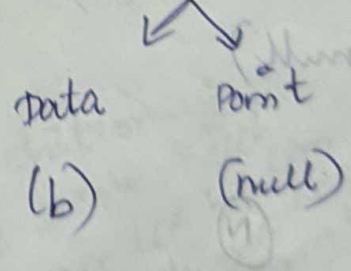 Data Point
(b) (null)